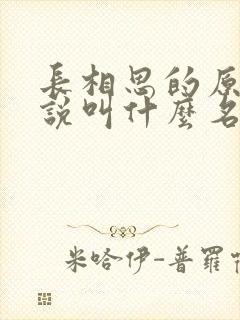 長相思的原
說叫什麼名
米哈伊-普羅特